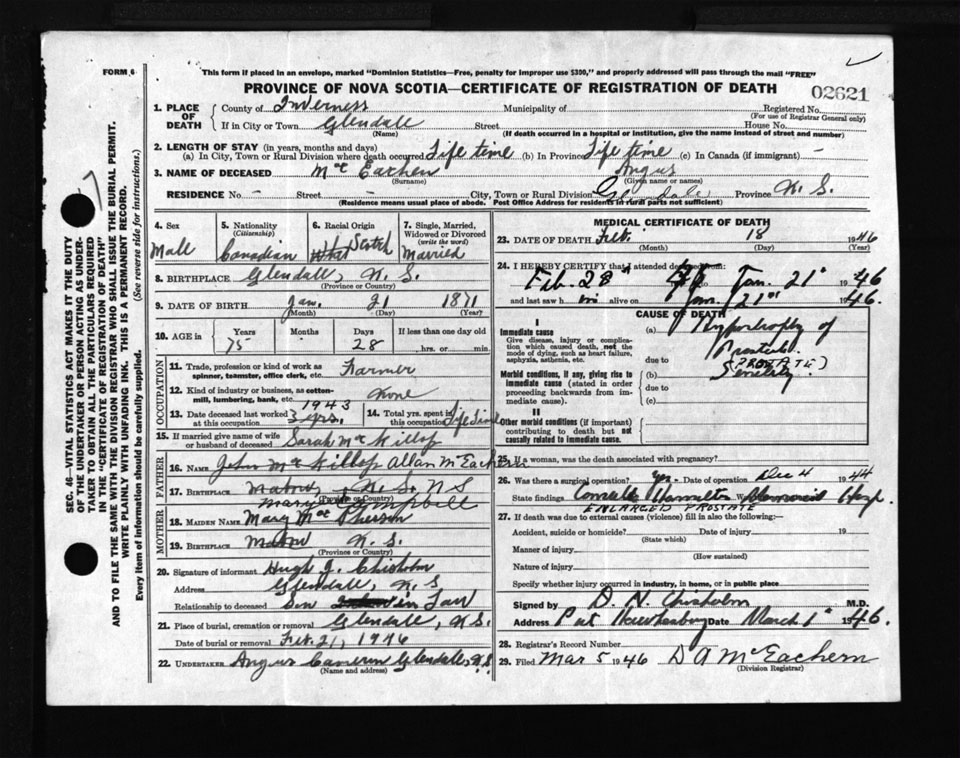 FORM 6
This form if placed in an envelope, marked "Dominion Statistics—Free, penalty for improper use $300," and properly addressed will pass through the mail "FREE"
PROVINCE OF NOVA SCOTIA—CERTIFICATE OF REGISTRATION OF DEATH
02621
1. PLACE OF DEATH County of Inverness Municipality of Registered No.
(For use of Registrar General only)
If in City or Town Glendale Street House No.
(Name) (If death occurred in a hospital or institution, give the name instead of street and number)
2. LENGTH OF STAY (in years, months and days)
(a) In City, Town or Rural Division where death occurred Life time (b) In Province Life time (c) In Canada (if immigrant) -
3. NAME OF DECEASED McEachen Angus
(Surname) (Given name or names)
RESIDENCE No - Street - City, Town or Rural Division Glendale Province N. S.
(Residence means usual place of abode. Post Office Address for residents in rural parts not sufficient)
4. Sex 5. Nationality (Citizenship) 6. Racial Origin 7. Single, Married, Widowed or Divorced (write the word)
Male Canadian Scotch Married
8. BIRTHPLACE Glendale, N. S.
(Province or Country)
9. DATE OF BIRTH Jan. 21 1871
(Month) (Day) (Year)
10. AGE Years Months Days If less than one day old
75 28 hrs. or min.
OCCUPATION
11. Trade, profession or kind of work as spinner, teamster, office clerk, etc. Farmer
12. Kind of industry or business, as cotton-mill, lumbering, bank, etc. None
13. Date deceased last worked at this occupation 1943 3 yrs. 14. Total yrs. spent in this occupation Life Time
15. If married give name of wife or husband of deceased Sarah McKillop
FATHER
16. NAME John McKillop Allan McEachern
17. BIRTHPLACE Mabou, N. S. N S
(Province or Country)
MOTHER
Mary Campbell
18. MAIDEN NAME Mary McPherson
19. BIRTHPLACE Mabou N. S.
(Province or Country)
20. Signature of informant Hugh J. Chisholm
Address Glendale, N. S
Relationship to deceased Son in Law
21. Place of burial, cremation or removal Glendale, N. S.
Date of burial or removal Feb. 21, 1946
22. UNDERTAKER Angus Cameron Glendale, N. S.
(Name and address)
MEDICAL CERTIFICATE OF DEATH
23. DATE OF DEATH Feb. 18 1946
(Month) (Day)
24. I HEREBY CERTIFY that I attended deceased from:
Feb. 28 to Jan. 21 1946
and last saw him alive on Jan. 21st 1946.
CAUSE OF DEATH
I
Immediate cause
Give disease, injury or complication which caused death, not the mode of dying, such as heart failure, asphyxia, asthenia, etc.
(a) Hypertrophy of Prostate
due to (PROSTATE)
Morbid conditions, if any, giving rise to immediate cause (stated in order proceeding backwards from immediate cause).
(b) Senility
due to
(c)
II
Other morbid conditions (if important) contributing to death but not causally related to immediate cause.
25. If a woman, was the death associated with pregnancy?
26. Was there a surgical operation? Yes - Date of operation Dec 4 1944
State findings Hamilton Memorial Hosp
ENLARGED PROSTATE
27. If death was due to external causes (violence) fill in also the following:—
Accident, suicide or homicide? Date of injury 19
(State which)
Manner of injury
(How sustained)
Nature of injury
Specify whether injury occurred in industry, in home, or in public place
Signed by D. N. Chisholm M.D.
Address Port Hawkesbury Date March 1st 1946.
28. Registrar's Record Number
29. Filed Mar 5 1946 D A McEachern
(Division Registrar)
SEC. 46—VITAL STATISTICS ACT MAKES IT THE DUTY
OF THE UNDERTAKER OR PERSON ACTING AS UNDER-
TAKER TO OBTAIN ALL THE PARTICULARS REQUIRED
IN THE "CERTIFICATE OF REGISTRATION OF DEATH"
AND TO FILE THE SAME WITH THE DIVISION REGISTRAR WHO SHALL ISSUE THE BURIAL PERMIT.
WRITE PLAINLY WITH UNFADING INK. THIS IS A PERMANENT RECORD.
Every item of information should be carefully supplied. (See reverse side for instructions.)